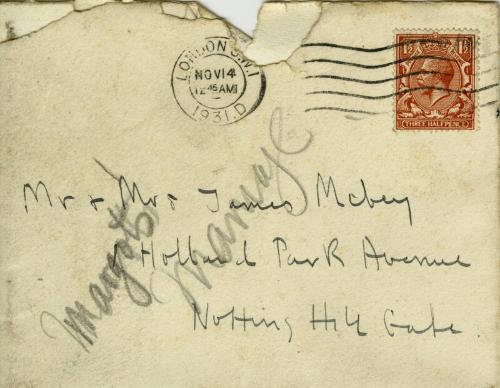 LONDON S.W.1
NOV 14
12 45 AM
1931. D
1½ 1½
THREE HALFPENCE
Mr & Mrs James McBey
1 Holland Park Avenue
Notting Hill Gate.
Margot's
Marriage